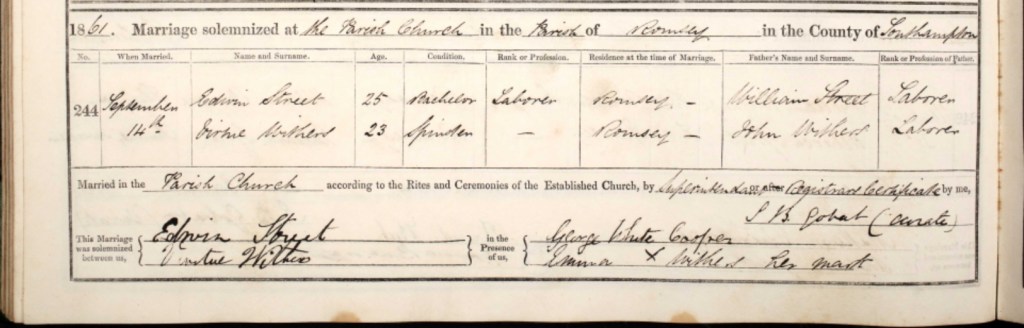 1861. Marriage solemnized at the Parish Church in the Parish of Romsey in the County of Southampton
No. When Married. Name and Surname. Age. Condition. Rank or Profession. Residence at the time of Marriage. Father's Name and Surname. Rank or Profession of Father.
244 September Edwin Street 25 Bachelor Laborer Romsey - William Street Laborer
14th Virtue Withers 23 Spinster - Romsey - John Withers Laborer
Married in the Parish Church according to the Rites and Ceremonies of the Established Church, by Superintendant or after Registrars Certificate by me,
S B Gobat (Curate)
This Marriage was solemnized between us, Edwin Street in the Presence of us, George White Cooper
Virtue Withers Emma X Withers her mark